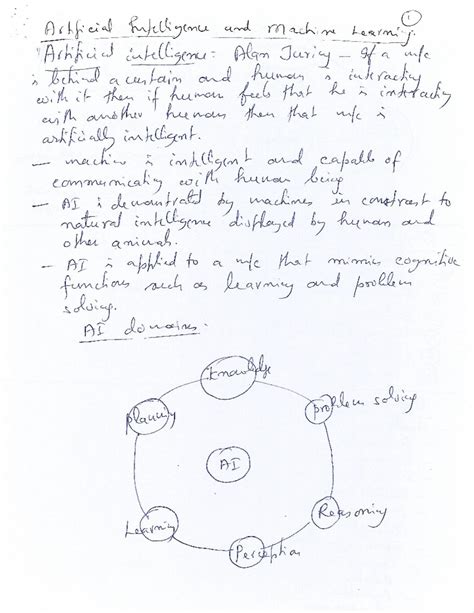 1
Artificial Intelligence and Machine Learning.
Artificial intelligence: Alan Turing – If a m/c
is behind a curtain and human is interacting
with it then if human feels that he is interacting
with another human then that m/c is
artificially intelligent.
– machine is intelligent and capable of
communicating with human being
– AI is demonstrated by machines in constrast to
natural intelligence displayed by human and
other animals.
– AI is applied to a m/c that mimics cognitive
functions such as learning and problem
solving.
AI domains.
knowledge
planning
problem solving
AI
Learning
Reasoning
Perception